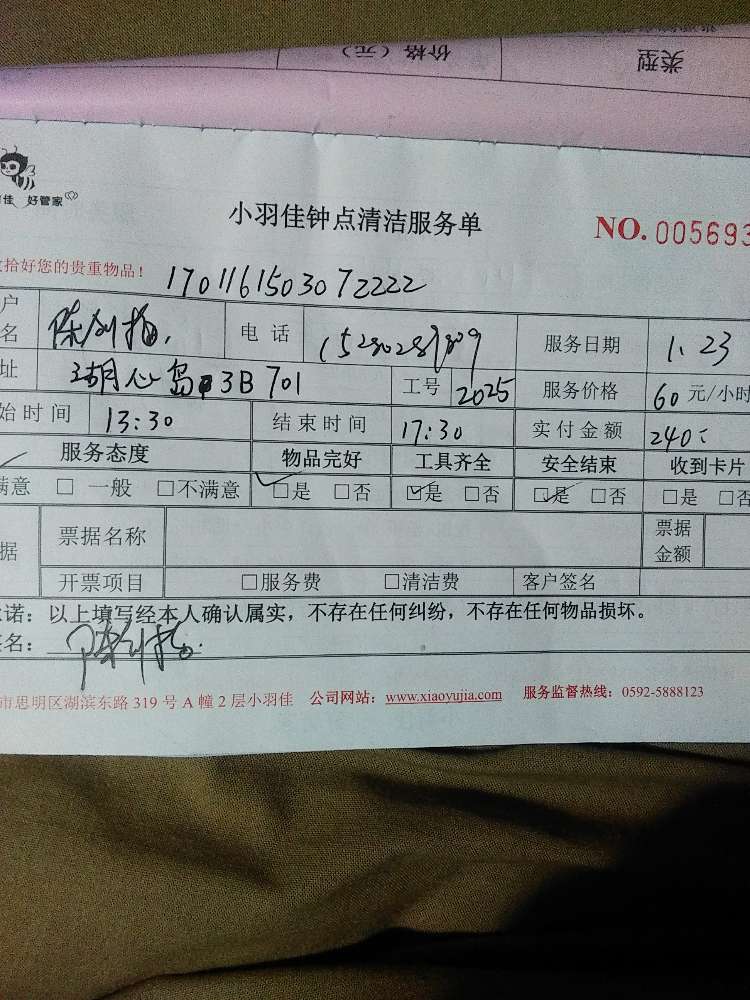 类型 价格（元）
佳 好管家
小羽佳钟点清洁服务单 NO. 005693
拾好您的贵重物品！ 1701161503072222
户名 电话 服务日期 1.23
址 湖心岛 3B 701 工号 2025 服务价格 60 元/小时
始时间 13:30 结束时间 17:30 实付金额 240
服务态度 物品完好 工具齐全 安全结束 收到卡片
满意 □ 一般 □不满意 □是 □否 □是 □否 □是 □否 □是 □否
据 票据名称 票据金额
开票项目 □服务费 □清洁费 客户签名
诺：以上填写经本人确认属实，不存在任何纠纷，不存在任何物品损坏。
名：
市思明区湖滨东路 319 号 A 幢 2 层小羽佳 公司网站：www.xiaoyujia.com 服务监督热线：0592-5888123